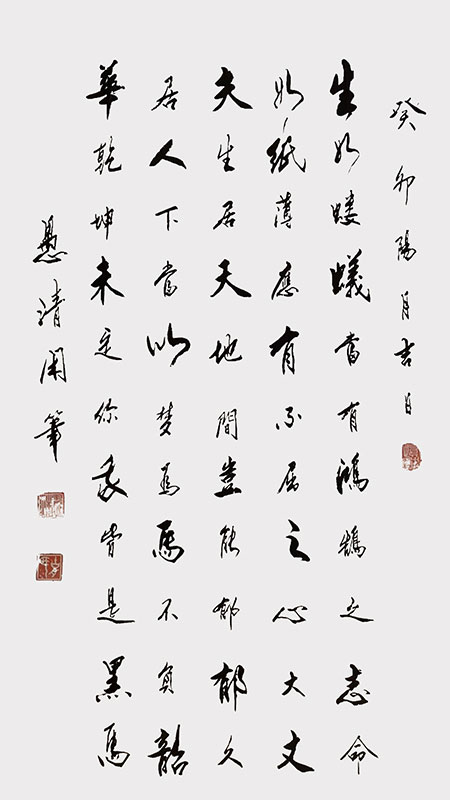 癸卯陽月吉日
生如螻蟻當有鴻鵠之志命
如紙薄應有不屈之心大丈
夫生居天地間豈能郁郁久
居人下當以梦為馬不負韶
華乾坤未定你我皆是黑馬
愚清閑筆